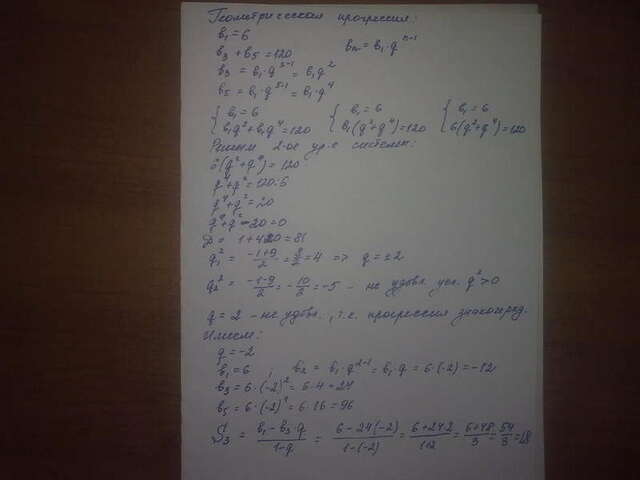 Геометрическая прогрессия:
b₁=6
b₃ + b₅ =120 bₙ = b₁·qⁿ⁻¹
b₃ = b₁·q³⁻¹ = b₁q²
b₅ = b₁·q⁵⁻¹ = b₁·q⁴
{ b₁=6 { b₁=6 { b₁=6
b₁q²+b₁q⁴=120 b₁(q²+q⁴)=120 6(q²+q⁴)=120
Решим 2-ое ур-е системы:
6(q²+q⁴) = 120
q⁴+q²=120:6
q⁴+q²=20
q⁴+q²-20=0
D = 1+4·20=81
q₁² = (-1+9)/2 = 8/2 = 4 => q=±2
q₂² = (-1-9)/2 = -10/2 = -5 - не удовл. усл. q²>0
q = 2 - не удовл., т.к. прогрессия знакочеред.
Имеем:
q=-2
b₁=6 ; b₂ = b₁·q²⁻¹ = b₁·q = 6·(-2) = -12
b₃ = 6·(-2)² = 6·4=24
b₅ = 6·(-2)⁴ = 6·16=96
S₃ = (b₁-b₃·q)/(1-q) = (6-24(-2))/(1-(-2)) = (6+24·2)/(1+2) = (6+48)/3 = 54/3 = 18